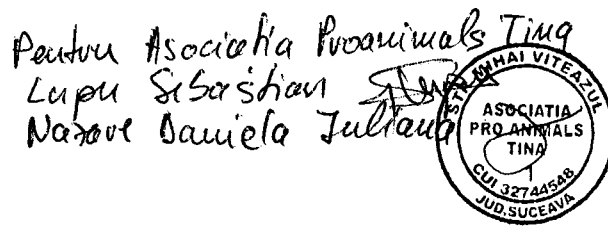 Pentru Asociatia Proanimals Tina
Lupu Sebastian
Nazare Daniela Iuliana
STR. MIHAI VITEAZUL
ASOCIATIA
PRO ANIMALS
TINA
1
CUI 32744548
JUD. SUCEAVA